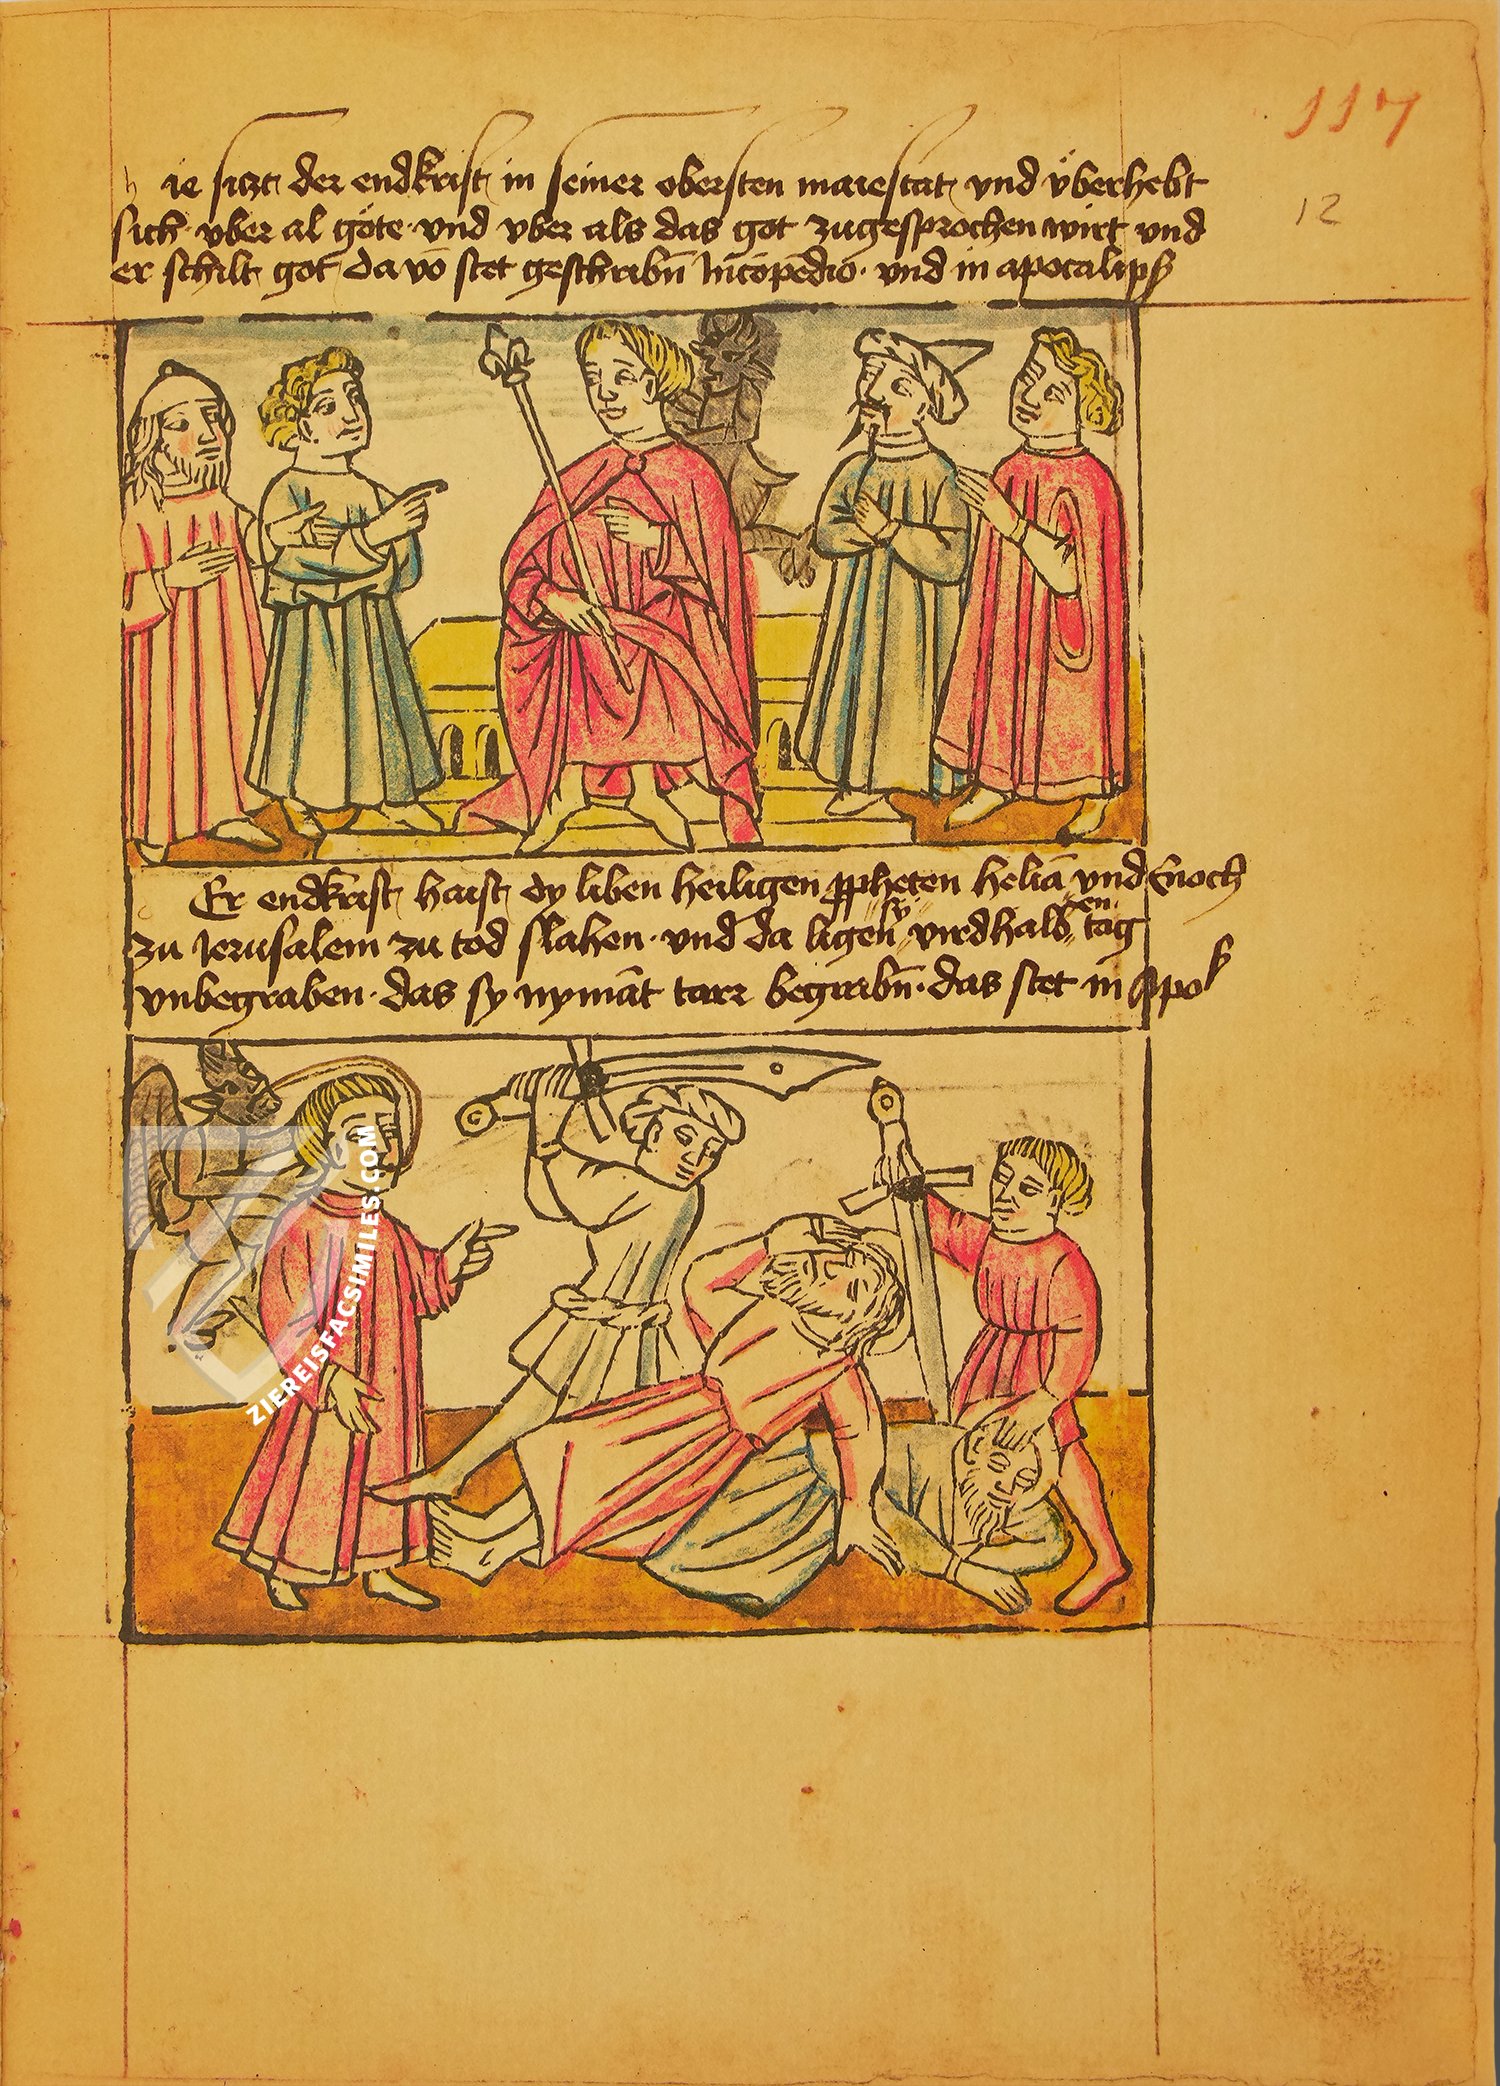 117
12
h ie siczt der endkrist in seiner obersten maiestat vnd vberhebt
sich · vber al göte · vnd vber als das got zugesprochen wirt vnd
er schilt got da vō stet geschribn̄ Incōpēdio · vnd in apocalips
Er endkrist haist dy liben heiligen ꝓpheten heliā vnd Enoch
zu Jerusalem zu tod slahen · vnd da ligen sy virdhalben tag
vnbegraben · das sy nymāt tarr begrabn̄ · das stet in Apo
ZIEREISFACSIMILES.COM